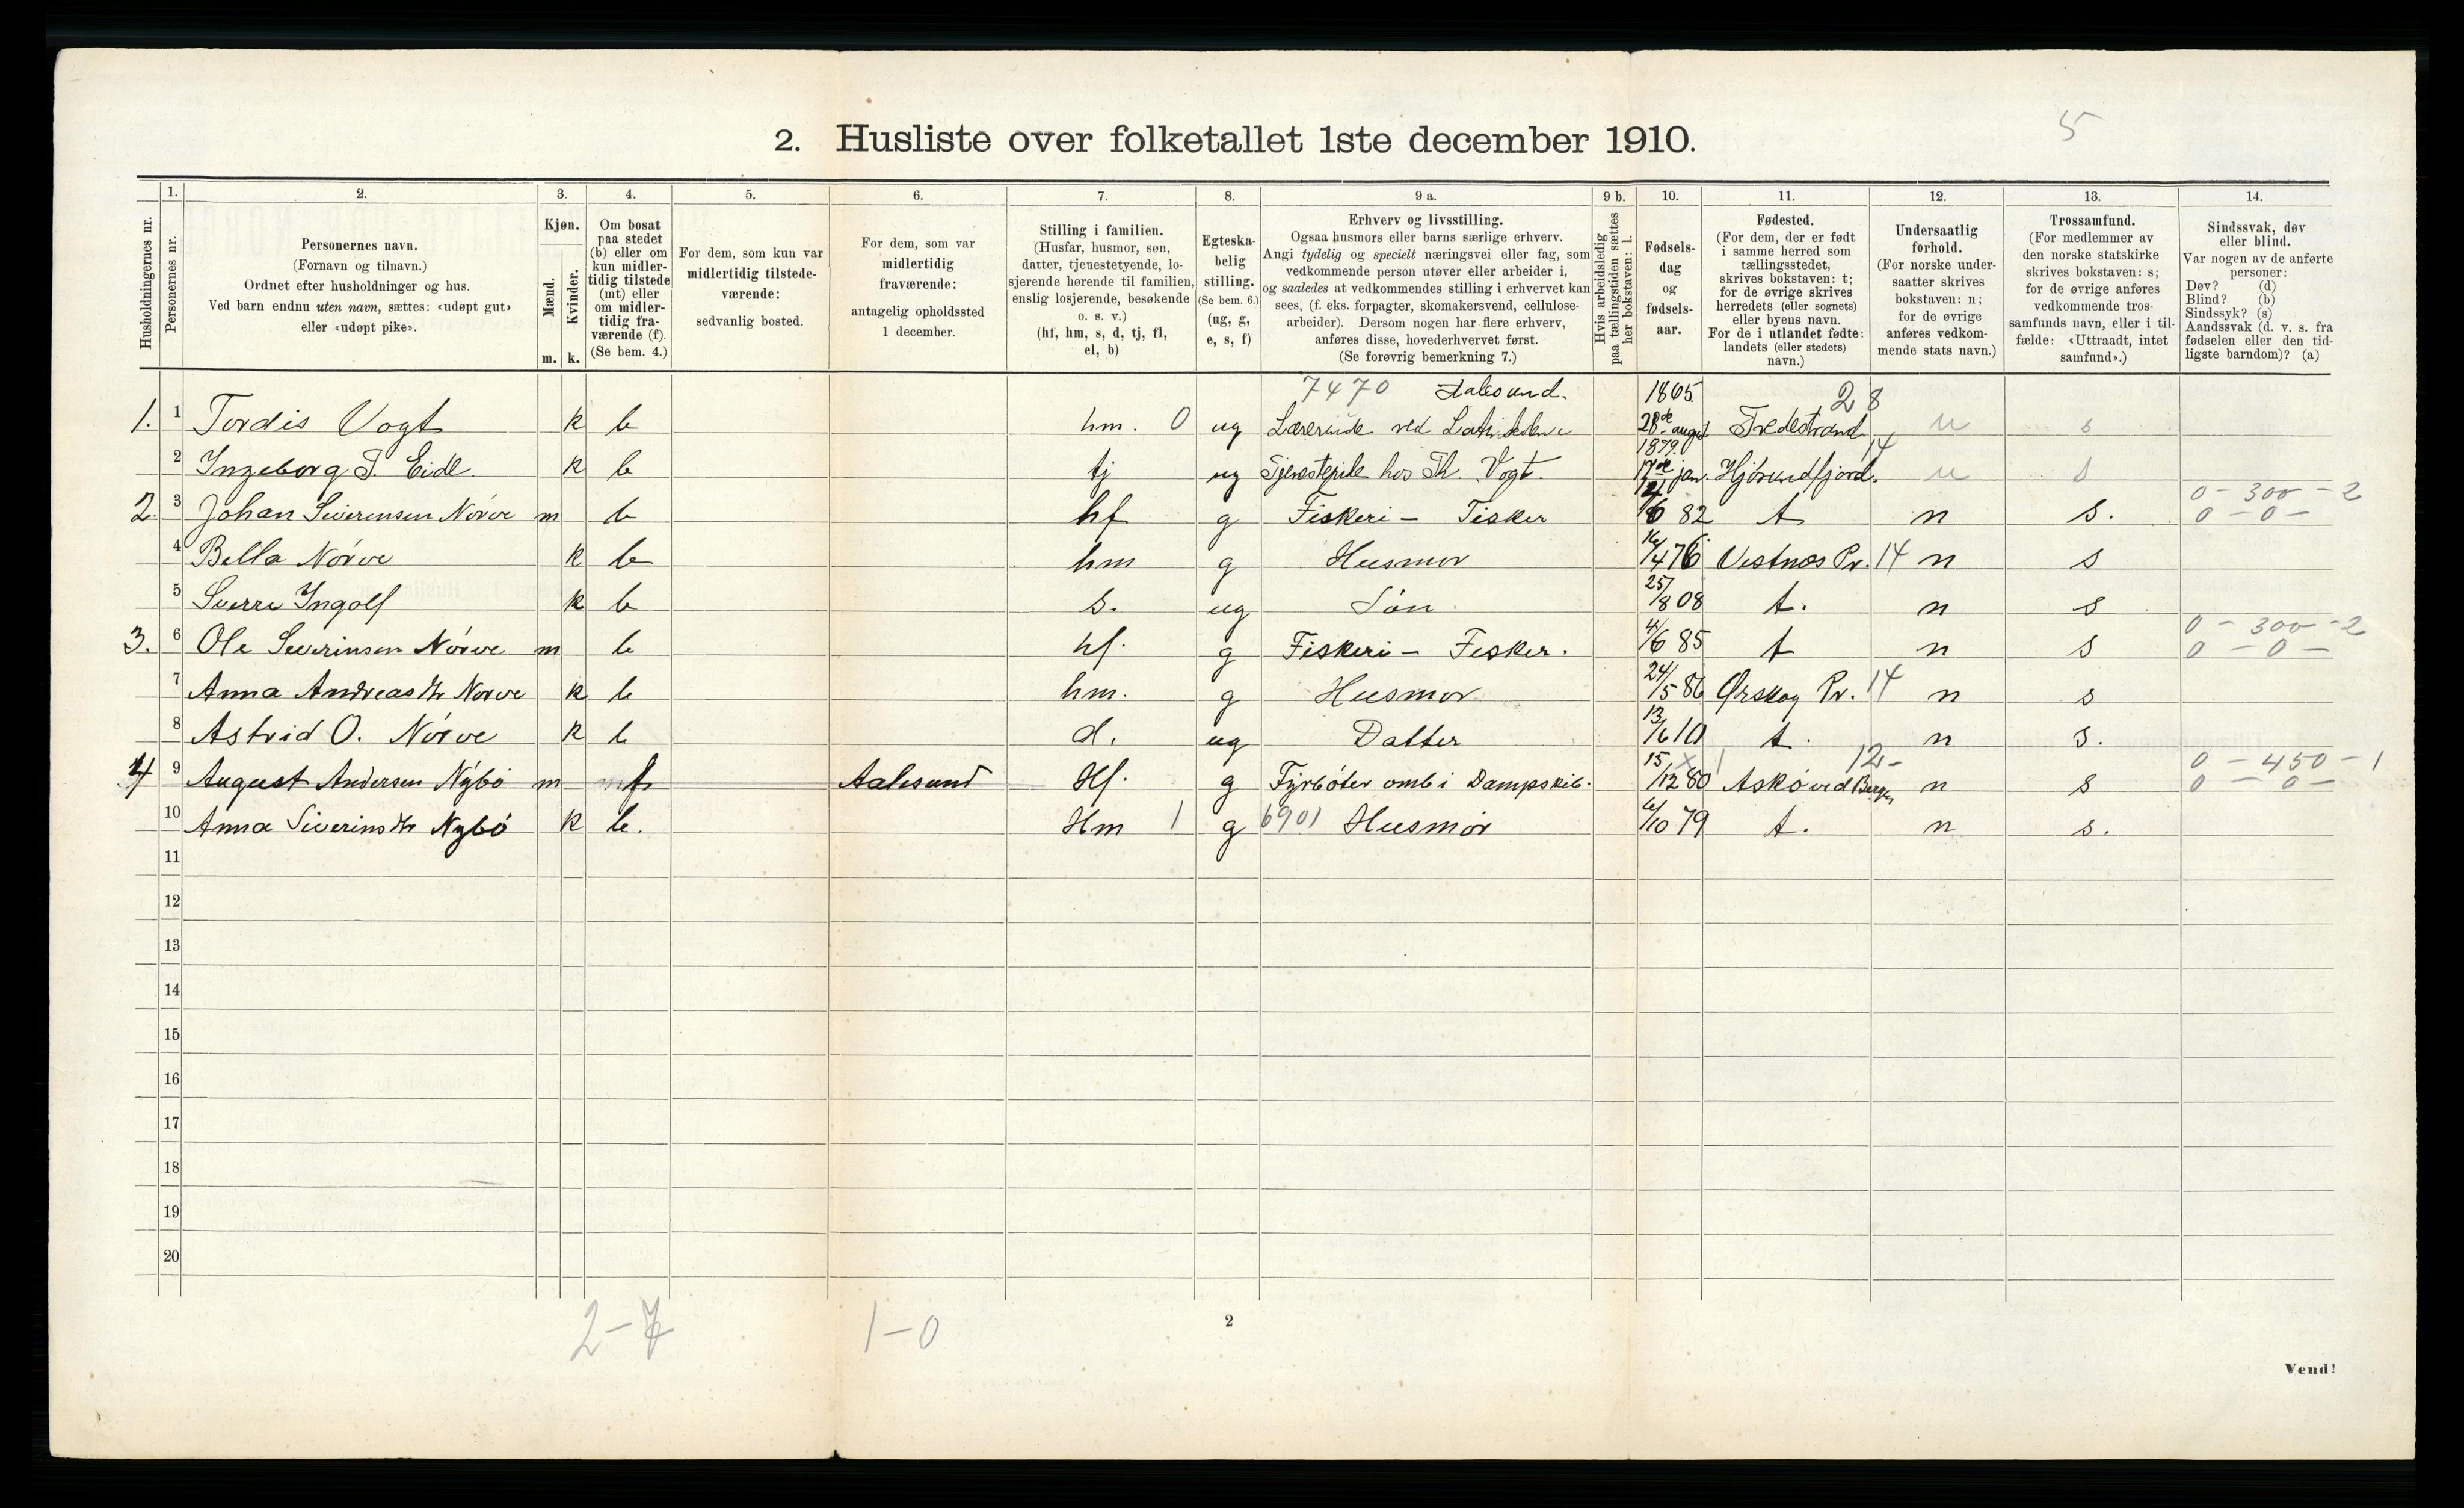 2. Husliste over folketallet 1ste december 1910.
5
1. 2. 3. 4. 5. 6. 7. 8. 9 a. 9 b. 10. 11. 12. 13. 14.
Husholdningernes nr.
Personernes nr.
Personernes navn.
(Fornavn og tilnavn.)
Ordnet efter husholdninger og hus.
Ved barn endnu uten navn, sættes: «udøpt gut»
eller «udøpt pike».
Kjøn.
Mænd.
Kvinder.
m. k.
Om bosat
paa stedet
(b) eller om
kun midler-
tidig tilstede
(mt) eller
om midler-
tidig fra-
værende (f).
(Se bem. 4.)
For dem, som kun var
midlertidig tilstede-
værende:
sedvanlig bosted.
For dem, som var
midlertidig
fraværende:
antagelig opholdssted
1 december.
Stilling i familien.
(Husfar, husmor, søn,
datter, tjenestetyende, lo-
sjerende hørende til familien,
enslig losjerende, besøkende
o. s. v.)
(hf, hm, s, d, tj, fl,
el, b)
Egteska-
belig
stilling.
(Se bem. 6.)
(ug, g,
e, s, f)
Erhverv og livsstilling.
Ogsaa husmors eller barns særlige erhverv.
Angi tydelig og specielt næringsvei eller fag, som
vedkommende person utøver eller arbeider i,
og saaledes at vedkommendes stilling i erhvervet kan
sees, (f. eks. forpagter, skomakersvend, cellulose-
arbeider). Dersom nogen har flere erhverv,
anføres disse, hovederhvervet først.
(Se forøvrig bemerkning 7.)
Hvis arbeidsledig
paa tællingstiden sættes
her bokstaven: l.
Fødsels-
dag
og
fødsels-
aar.
Fødested.
(For dem, der er født
i samme herred som
tællingsstedet,
skrives bokstaven: t;
for de øvrige skrives
herredets (eller sognets)
eller byens navn.
For de i utlandet fødte:
landets (eller stedets)
navn.)
Undersaatlig
forhold.
(For norske under-
saatter skrives
bokstaven: n;
for de øvrige
anføres vedkom-
mende stats navn.)
Trossamfund.
(For medlemmer av
den norske statskirke
skrives bokstaven: s;
for de øvrige anføres
vedkommende tros-
samfunds navn, eller i til-
fælde: «Uttraadt, intet
samfund».)
Sindssvak, døv
eller blind.
Var nogen av de anførte
personer:
Døv? (d)
Blind? (b)
Sindssyk? (s)
Aandssvak (d. v. s. fra
fødselen eller den tid-
ligste barndom)? (a)
7470 Aalesund. 1865 28
1. 1 Tordis Vogt k b hm. 0 ug Lærerinde ved 28de august Tvedestrand n s
1879. 14
2 Ingeborg T. Eide k b tj ug Tjenestepike hos Th. Vogt. 17de jan. Hjörundfjord. n s
0 - 300 - 2
2. 3 Johan Severensen Nörve m b hf g Fiskeri - Fisker 6 82 t n s. 0 - 0 -
4 Bella Nörve k b hm g Husmor 16/4 76 Vestnæs Pr. 14 n s
5 Sverre Ingolf k b s. ug Sön 25/8 08 t. n s
0 - 300 - 2
3. 6 Ole Severinsen Nörve m b hf. g Fiskeri - Fisker. 4/6 85 t n s 0 - 0 -
7 Anna Andreasdtr Nørve k b hm. g Husmor 24/5 86 Ørskog Pr. 14 n s
8 Astrid O. Nörve k b d. ug Datter 13/6 10 t. n s.
12- 0 - 450 - 1
4 9 August Andersen Nybö m f Aalesund Hf. g Fyrböter omb i Dampskib. 15/12 80 Askö ved Bergen n s 0 - 0 -
10 Anna Siverinsdtr Nybö k b. Hm 1 g 6901 Husmor 6/10 79 t. n s.
11
12
13
14
15
16
17
18
19
20
2-7 1-0
2
Vend!